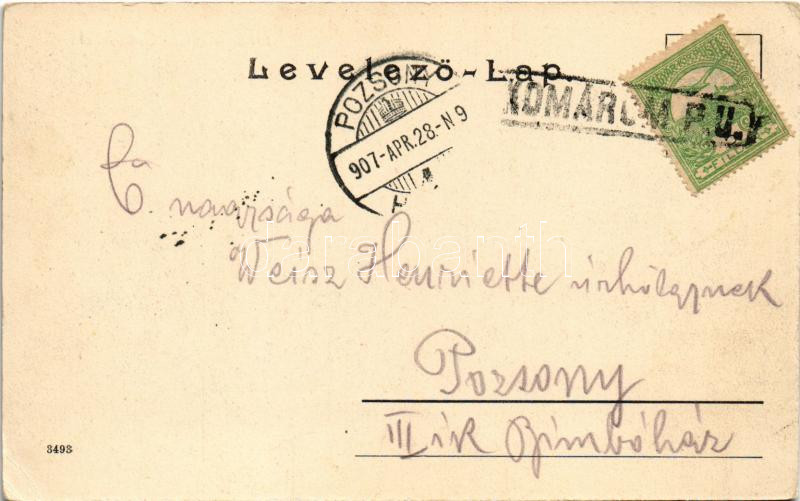 Levelező-Lap
POZSONY
907-APR.28-N9
KOMÁROM P.U.
Ő nagysága
Weisz Henriette úrhölgynek
Pozsony
III ik Bimbóház
3493
Darabanth